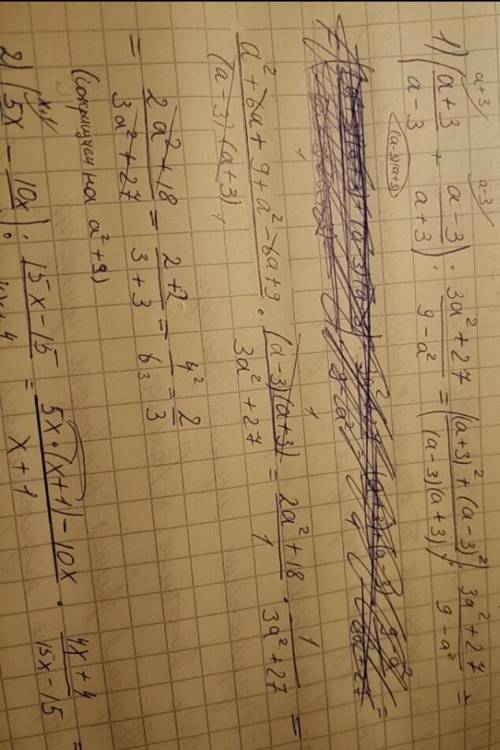 a+3 a-3
1) (a+3/a-3 + a-3/a+3) : 3a²+27/9-a² = ((a+3)²+(a-3)²/(a-3)(a+3)) : 3a²+27/9-a² =
(a-3)(a+3)
a²+6a+9+a²-6a+9/(a-3)(a+3) · (a-3)(a+3)/3a²+27 = 2a²+18/1 · 1/3a²+27 =
= 2a²+18/3a²+27 = 2+2/3+3 = 4 2/6 3 = 2/3
(сокращаем на a²+9)
x+1
2) (5x - 10x/ ) : 15x-15/4x+4 = 5x·(x+1)-10x/x+1 · 4x+4/15x-15 =